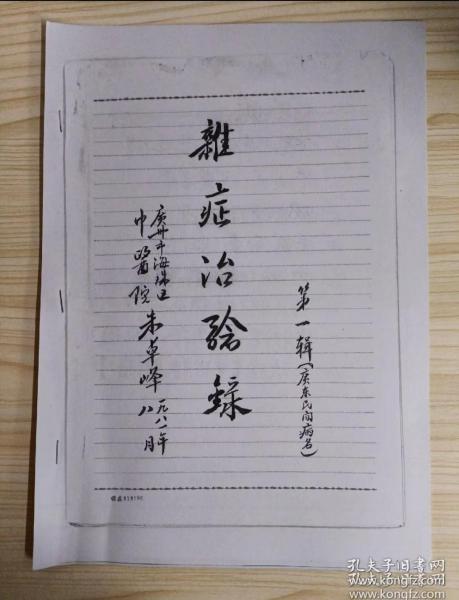 第一辑(广东民间病名)
雜症治験錄
广州市海珠区
中醫院 朱卓峰
一九八一年
八月
孔夫子旧书网
www.kongfz.com